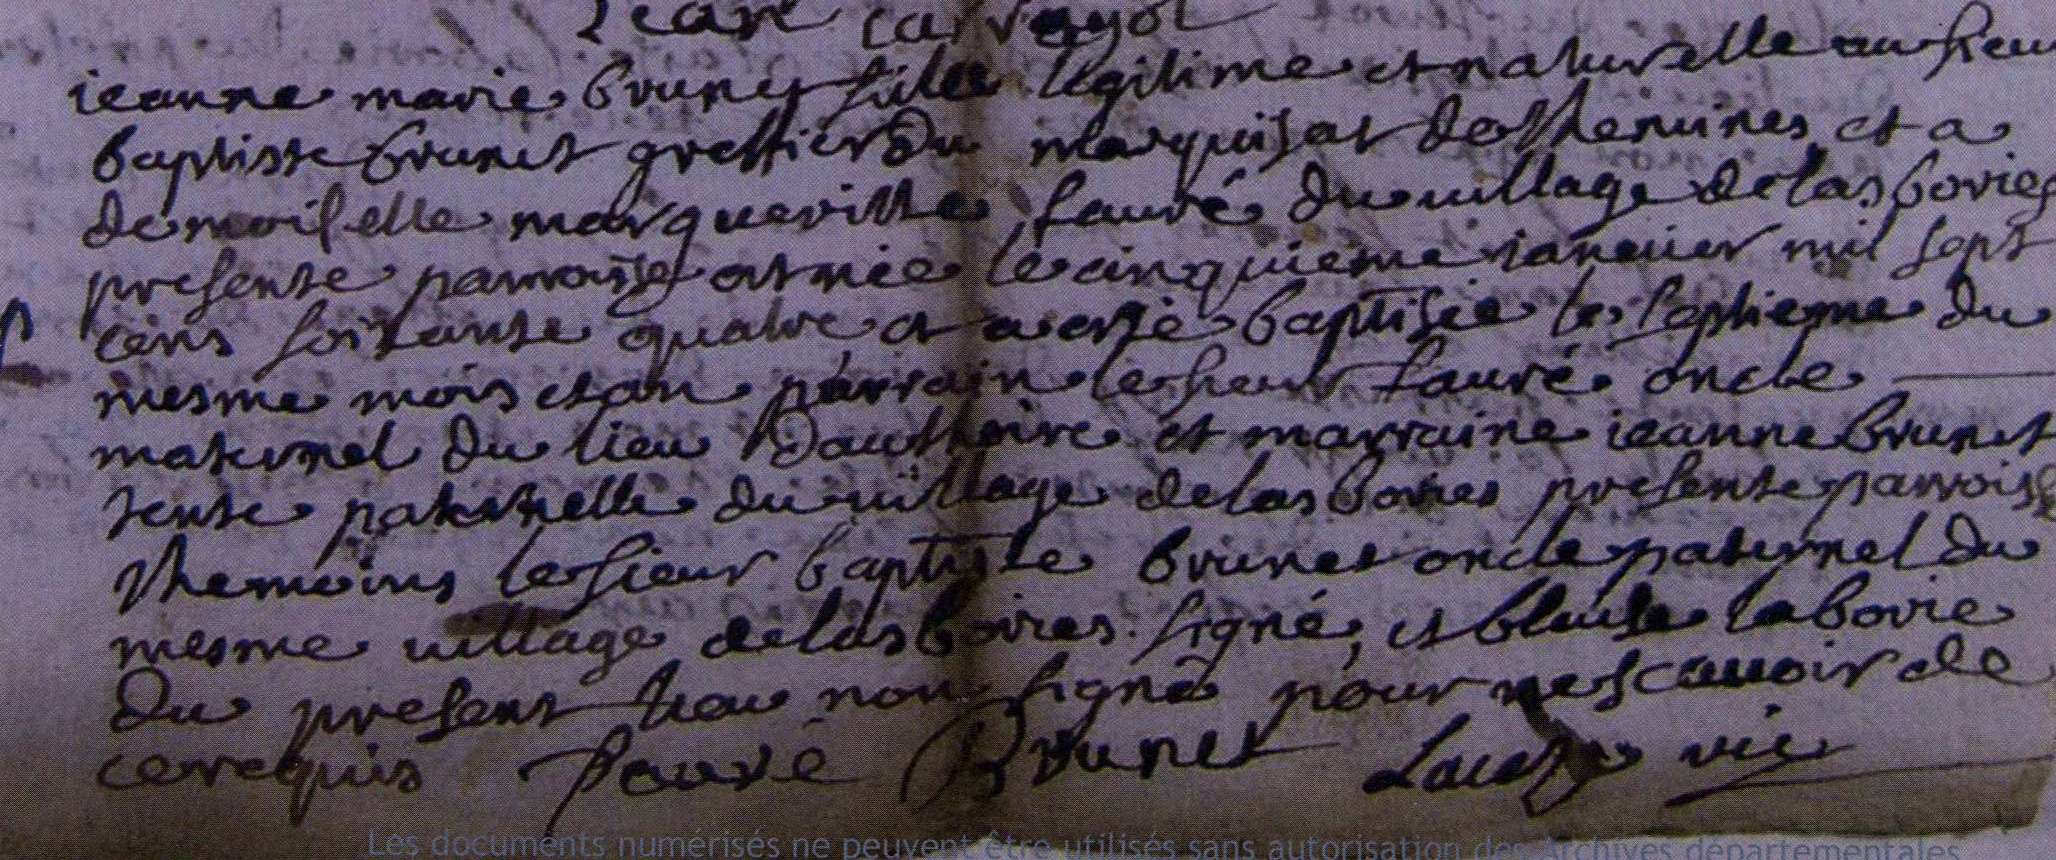 Jean
ieanne marie brunet fille legitime et naturelle au sieur
baptiste brunet greffier du marquisat de themines et a
demoiselle marqueritte fauré du village de las bories
presente parroisse et née le cinquieme ianuier mil sept
cens soixante quatre et a esté baptisée le septieme du
mesme mois et an parrain le sieur fauré oncle
maternel du lieu Dauthoire et marraine ieanne brunet
tente paternelle du village de las bories presente parroisse
themoins le sieur baptiste brunet oncle paternel du
mesme village de las bories signé, et blaise laborie
du present lieu non signé pour ne scauoir de
ce requis fauré Brunet vic
Les documents numérisés ne peuvent être utilisés sans autorisation des Archives départementales